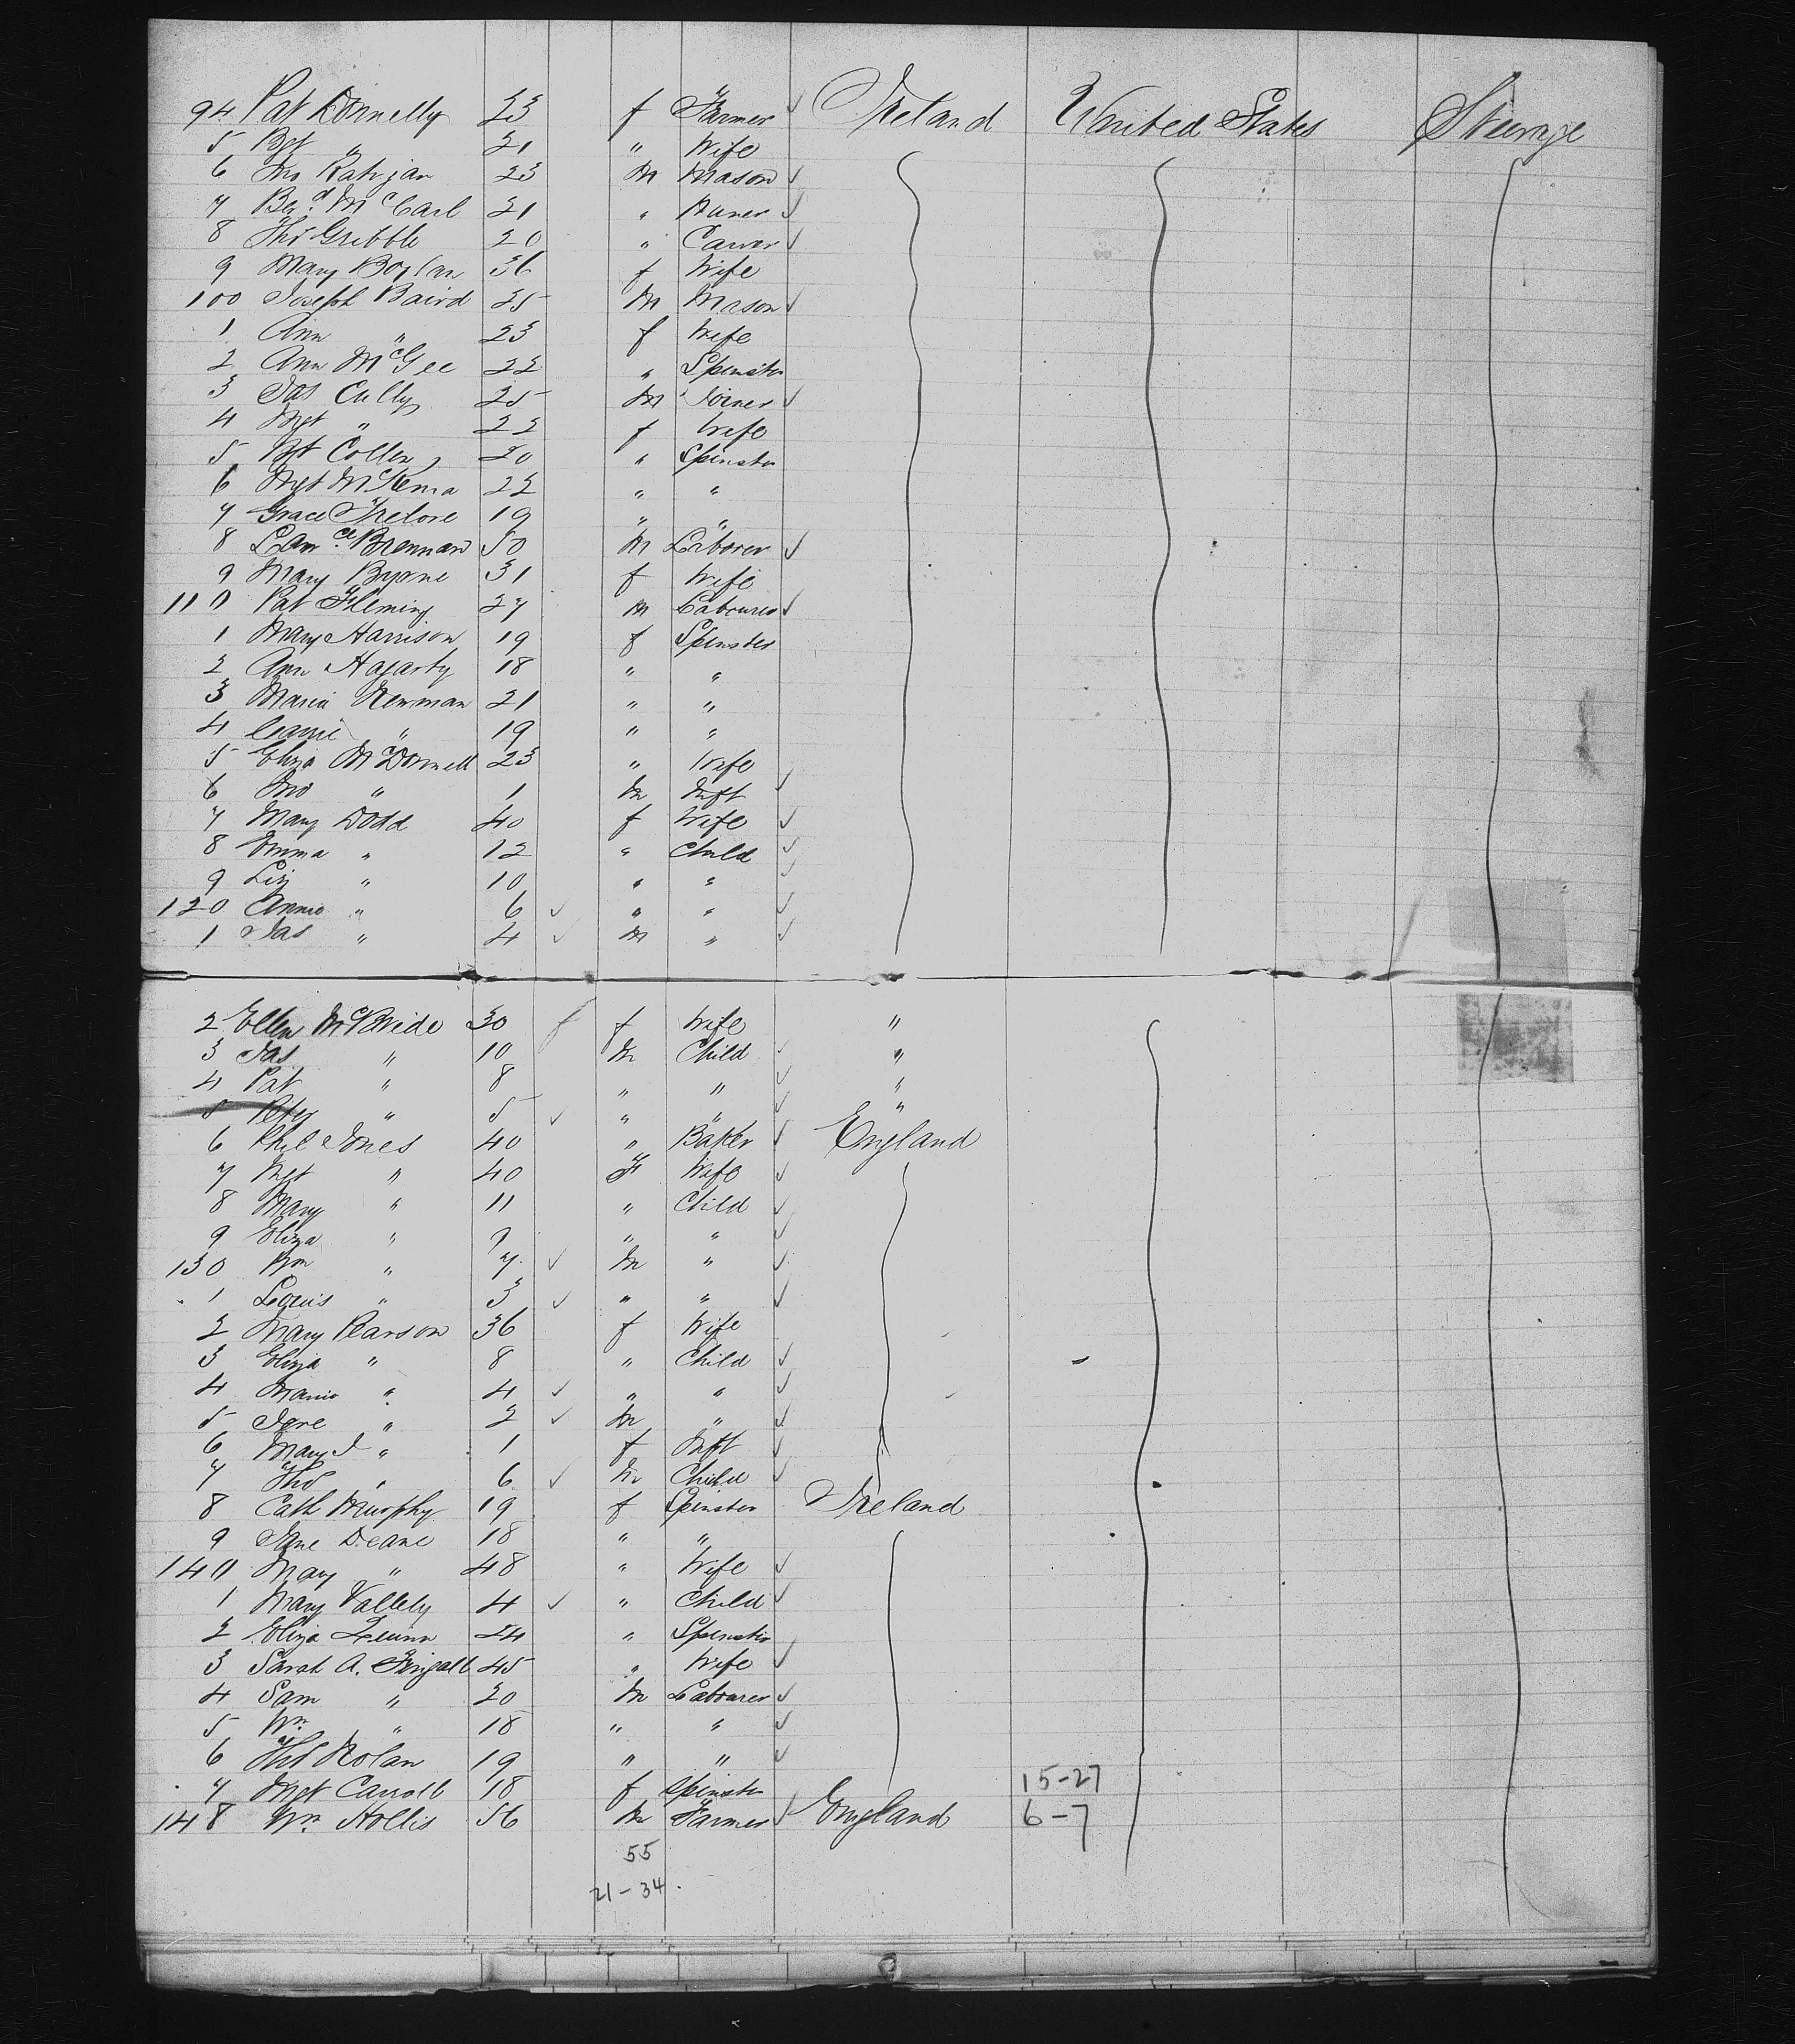 94 Pat Donnelly 23 f Farmer ✓ Ireland United States Steerage
5 Bgt " 21 " Wife
6 Jno 23 m Mason ✓
7 Berd McCarl 21 " ✓
8 Thos Gribble 20 " Carver ✓
9 Mary Boylan 36 f Wife
100 Joseph Baird 25 m Mason ✓
1 Ann " 23 f Wife
2 Ann McGee 22 " Spinster
3 Jas Cully 25 m Joiner ✓
4 Mgt " 22 f Wife
5 Bgt Collen 20 " Spinster
6 Mgt McKenna 22 " "
7 Grace Trelore 19 " "
8 Lawce Brennan 50 m Laborer ✓
9 Mary Byrne 31 f Wife
110 Pat Fleming 27 m Labourer ✓
1 Mary Harrison 19 f Spinster
2 Ann Hagarty 18 " "
3 Maria Newman 21 " "
4 " 19 " "
5 Eliza McDonnell 23 " Wife
6 Jno " 1 m Inft ✓
7 Mary Dodd 40 f Wife ✓
8 Emma " 12 " Child ✓
9 Liz " 10 " " ✓
120 Annie " 6 ✓ " " ✓
1 Jas " 4 ✓ m " ✓
2 Ellen McBride 30 f f Wife "
3 Jas " 10 m Child ✓ "
4 Pat " 8 " " ✓ "
5 Peter " 5 ✓ " " ✓ "
6 Phil Jones 40 " Baker ✓ England
7 Mgt " 40 F Wife ✓
8 Mary " 11 " Child ✓
9 Eliza " 9 " " ✓
130 Wm " 7 ✓ m " ✓
1 Louis " 3 ✓ " " ✓
2 Mary Pearson 36 f Wife
3 Eliza " 8 " Child ✓
4 " 4 ✓ " " ✓
5 Jane " 2 ✓ m " ✓
6 Mary J " 1 f Inft ✓
7 Thos " 6 ✓ m Child ✓
8 Cath Murphy 19 f Spinster Ireland
9 Jane Deane 18 " "
140 Mary " 48 " Wife ✓
1 Mary Vallely 4 ✓ " Child ✓
2 Eliza Quinn 24 " Spinster
3 Sarah A. Fingall 45 " Wife ✓
4 Sam " 20 m Labourer ✓
5 Wm " 18 " " ✓
6 Thos Nolan 19 " " ✓
7 Mgt Carroll 18 f Spinster 15-27
148 Wm Hollis 56 m Farmer ✓ England 6-7
55
21-34.